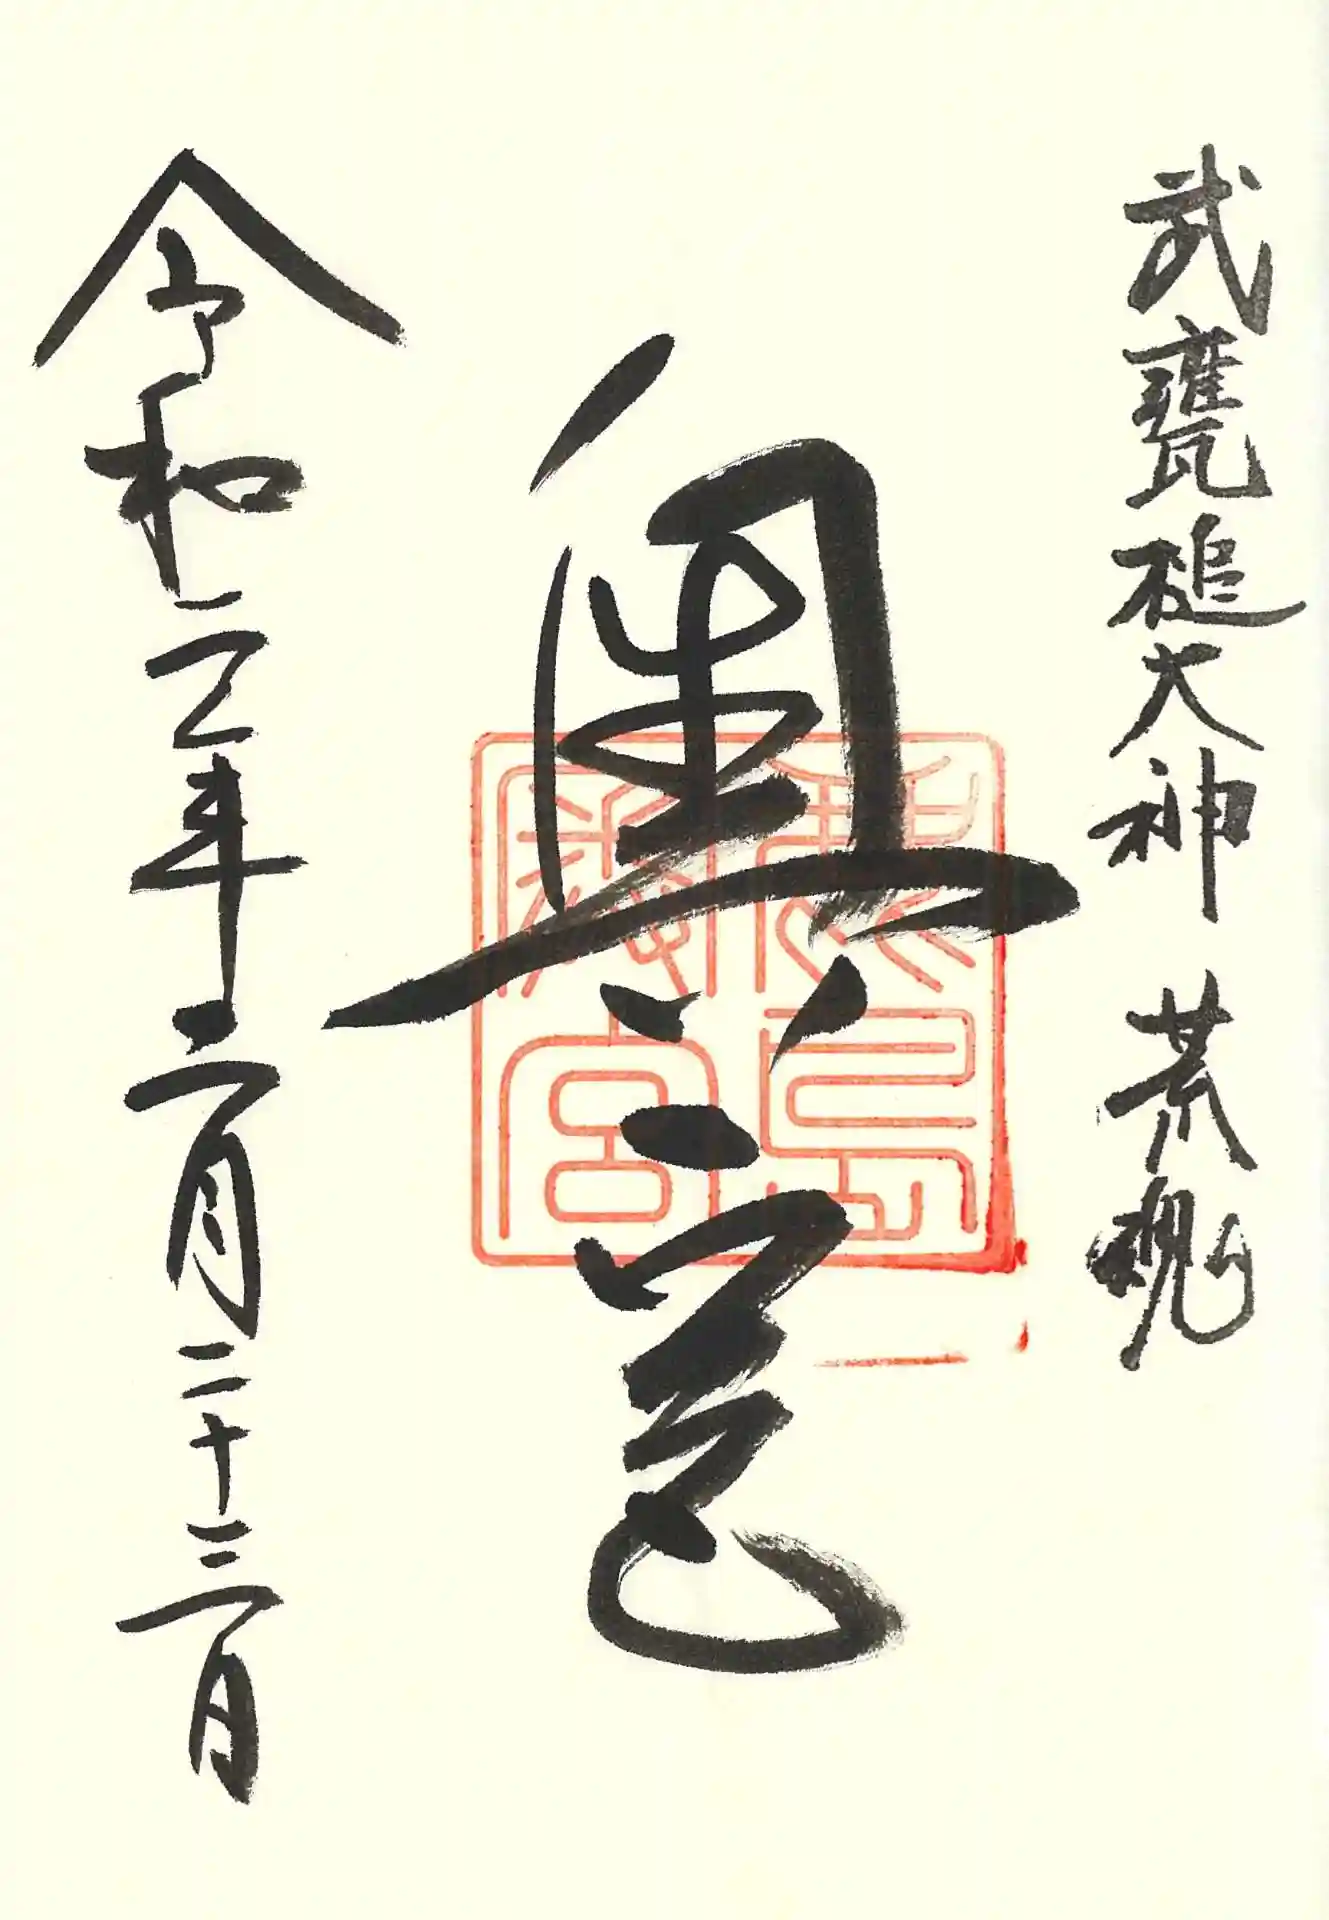 武甕槌大神 荒魂
奥宮
鹿島
神宮
令和三年三月二十三日